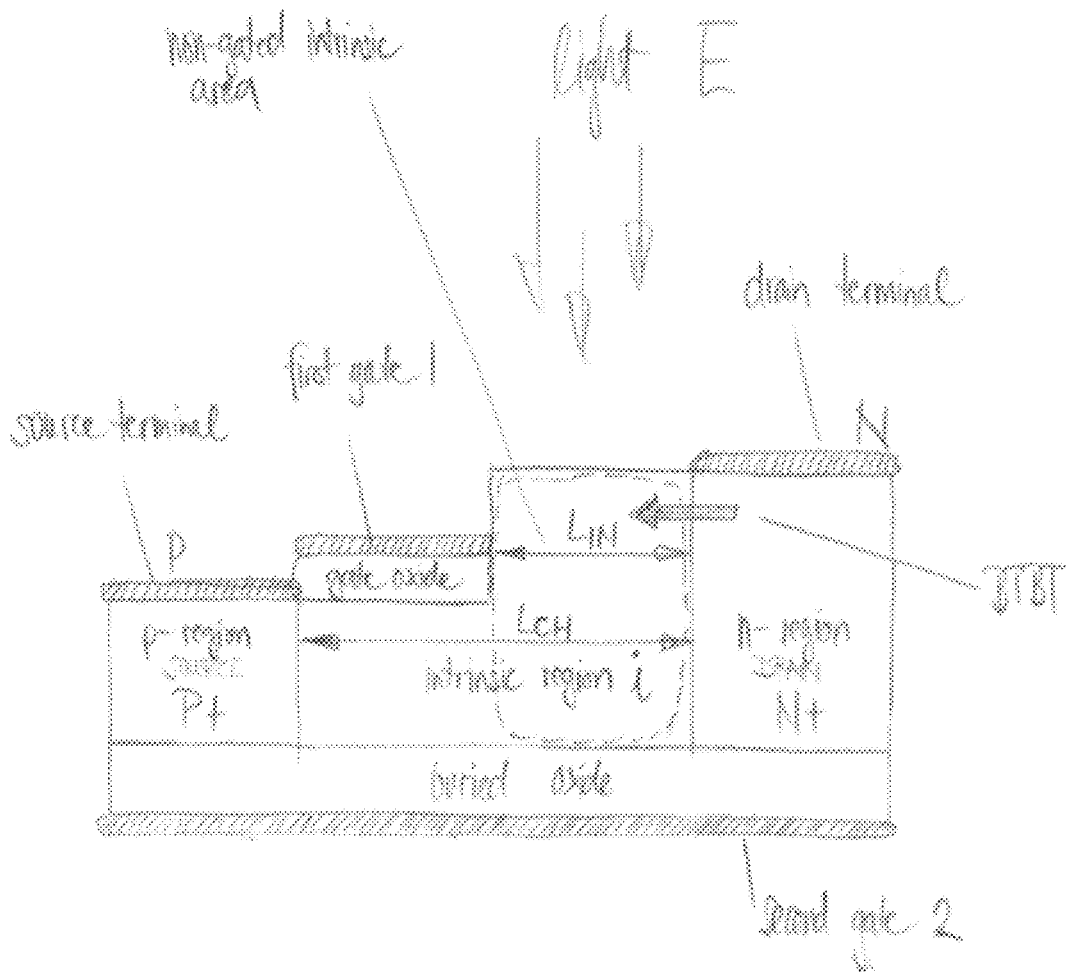 non-gated intrinsic
area
light E
drain terminal
first gate 1
source terminal
N
P
L_IN
gate oxide
BTBT
L_CH
p-region
source
P+
intrinsic region i
n-region
DRAIN
N+
buried oxide
second gate 2